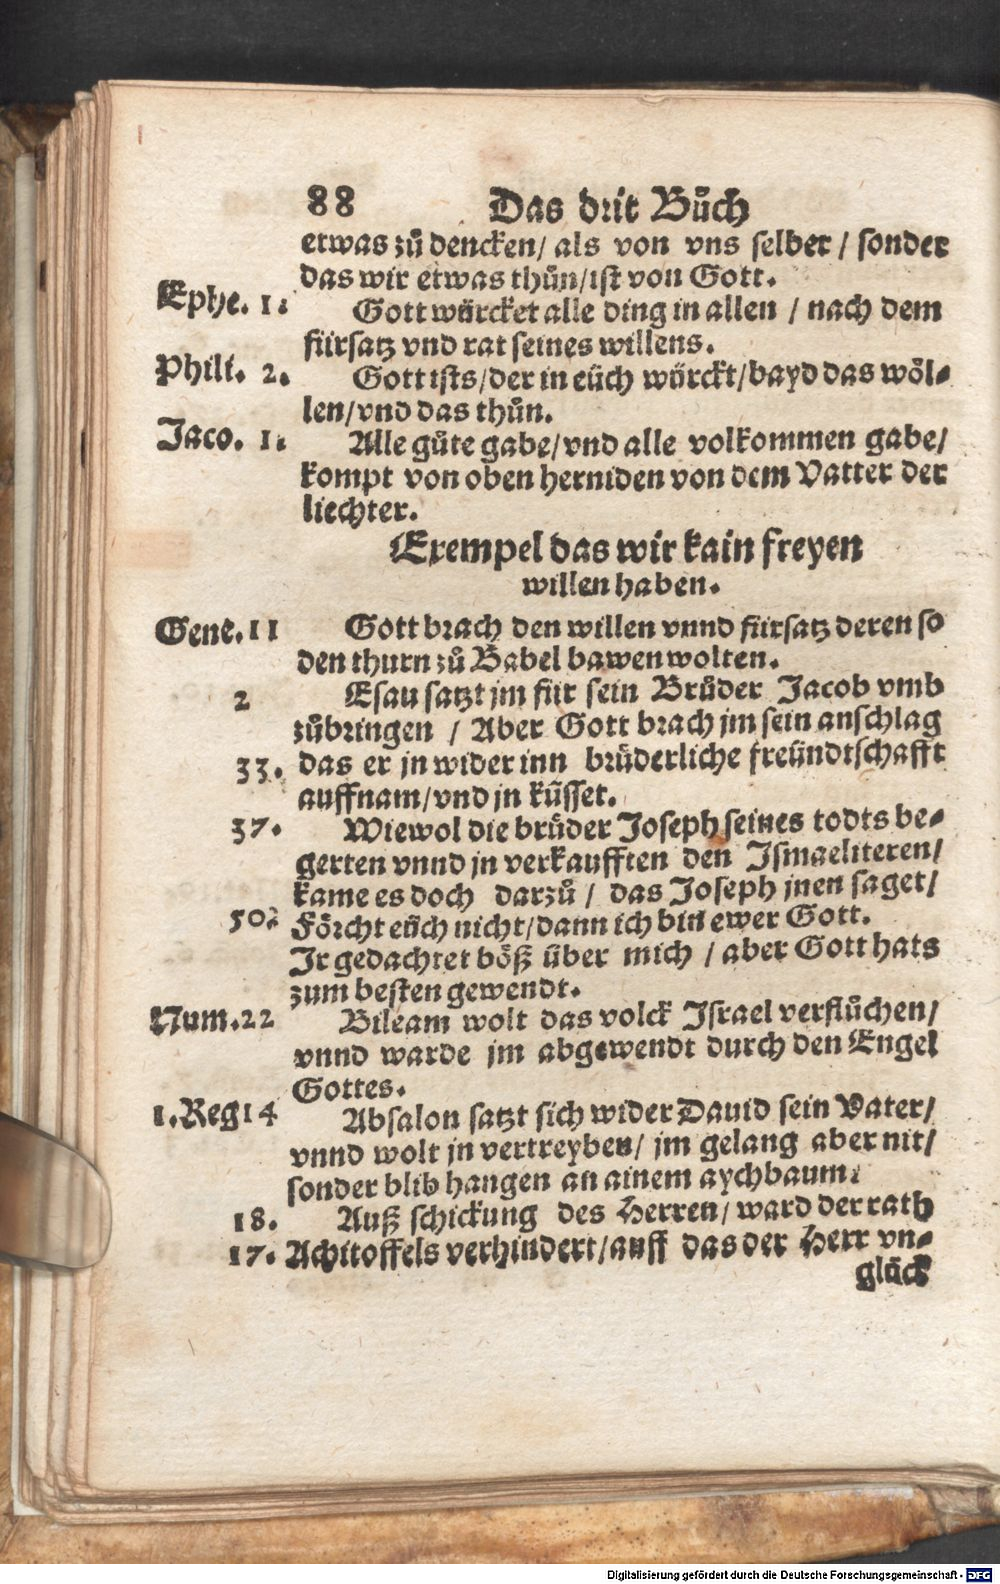 88 Das drit Bůch
etwas zů dencken/ als von vns selber / sonder
das wir etwas thůn/ist von Gott.
Ephe. 1. Gott würcket alle ding in allen / nach dem
fürsatz vnd rat seines willens.
Phili. 2. Gott ists/der in eüch würckt/bayd das wöl-
len/vnd das thůn.
Jaco. 1. Alle gůte gabe/vnd alle volkommen gabe/
kompt von oben herniden von dem Vatter der
liechter.
Exempel das wir kain freyen
willen haben.
Gene. 11 Gott brach den willen vnnd fürsatz deren so
den thurn zů Babel bawen wolten.
2 Esau satzt jm für sein Brůder Jacob vmb
zůbringen / Aber Gott brach jm sein anschlag
33. das er jn wider inn brüderliche freündtschafft
auffnam/vnd jn küsset.
37. Wiewol die brüder Joseph seines todts be-
gerten vnnd jn verkaufften den Ismaeliteren/
kame es doch darzů / das Joseph jnen saget/
50. Förcht eüch nicht/dann ich bin ewer Gott.
Ir gedachtet böß über mich / aber Gott hats
zum besten gewendt.
Num.22 Bileam wolt das volck Israel verflůchen/
vnnd warde jm abgewendt durch den Engel
Gottes.
1.Reg14 Absalon satzt sich wider Dauid sein Vater/
vnnd wolt jn vertreyben/ jm gelang aber nit/
sonder blib hangen an ainem aychbaum.
18. Auß schickung des Herren/ ward der rath
17. Achitoffels verhindert/auff das der Herr vn-
glück
Digitalisierung gefördert durch die Deutsche Forschungsgemeinschaft - DFG